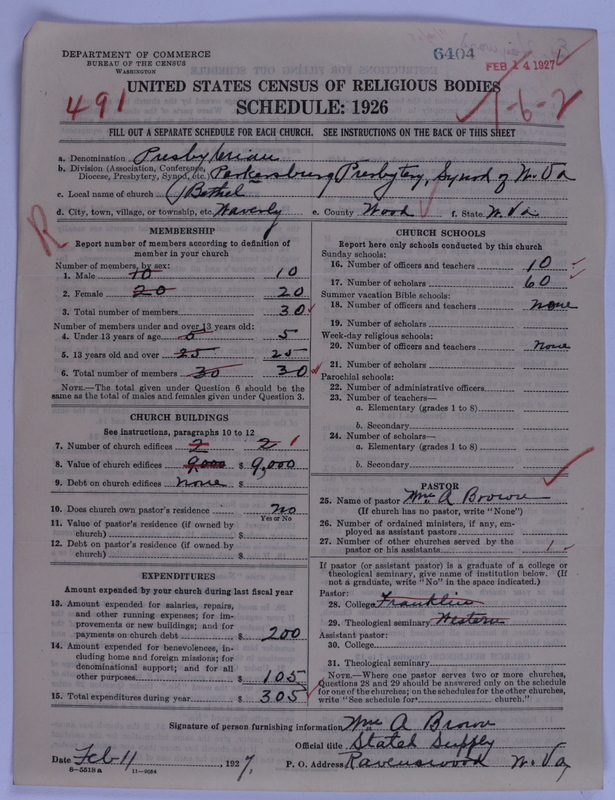 DEPARTMENT OF COMMERCE
BUREAU OF THE CENSUS
WASHINGTON
6404
FEB 14 1927
491
1-6-2
UNITED STATES CENSUS OF RELIGIOUS BODIES
SCHEDULE: 1926
FILL OUT A SEPARATE SCHEDULE FOR EACH CHURCH. SEE INSTRUCTIONS ON THE BACK OF THIS SHEET
a. Denomination Presbyterian
b. Division (Association, Conference, Diocese, Presbytery, Synod, etc.) Parkersburg Presbytery, Synod of W. Va
c. Local name of church Bethel
d. City, town, village, or township, etc. Waverly e. County Wood f. State W. Va
R
MEMBERSHIP
Report number of members according to definition of
member in your church
Number of members, by sex:
1. Male 10 10
2. Female 20 20
3. Total number of members 30
Number of members under and over 13 years old:
4. Under 13 years of age 5 5
5. 13 years old and over 25 25
6. Total number of members 30 30
NOTE.—The total given under Question 6 should be
same as the total of males and females given under Question 3.
CHURCH BUILDINGS
See instructions, paragraphs 10 to 12
7. Number of church edifices 2 2 1
8. Value of church edifices 9,000 $ 9,000
9. Debt on church edifices none $
10. Does church own pastor's residence no
Yes or No
11. Value of pastor's residence (if owned by
church) $
12. Debt on pastor's residence (if owned by
church) $
EXPENDITURES
Amount expended by your church during last fiscal year
13. Amount expended for salaries, repairs,
and other running expenses; for im-
provements or new buildings; and for
payments on church debt $ 200
14. Amount expended for benevolences, in-
cluding home and foreign missions; for
denominational support; and for all
other purposes $ 105
15. Total expenditures during year $ 305
CHURCH SCHOOLS
Report here only schools conducted by this church
Sunday schools:
16. Number of officers and teachers 10
17. Number of scholars 60
Summer vacation Bible schools:
18. Number of officers and teachers none
19. Number of scholars
Week-day religious schools:
20. Number of officers and teachers none
21. Number of scholars
Parochial schools:
22. Number of administrative officers
23. Number of teachers—
a. Elementary (grades 1 to 8)
b. Secondary
24. Number of scholars—
a. Elementary (grades 1 to 8)
b. Secondary
PASTOR
25. Name of pastor Wm A Brown
(If church has no pastor, write "None")
26. Number of ordained ministers, if any, em-
ployed as assistant pastors
27. Number of other churches served by the
pastor or his assistants 1
If pastor (or assistant pastor) is a graduate of a college or
theological seminary, give name of institution below. (If
not a graduate, write "No" in the space indicated.)
Pastor:
28. College Franklin
29. Theological seminary Western
Assistant pastor:
30. College
31. Theological seminary
NOTE.—Where one pastor serves two or more churches,
Questions 28 and 29 should be answered only on the schedule
for one of the churches; on the schedules for the other churches,
write "See schedule for church."
Signature of person furnishing information Wm A Brown
Official title Stated Supply
Date Feb 11, 1927. P. O. Address Ravenswood W. Va
8-5518a 11-9054